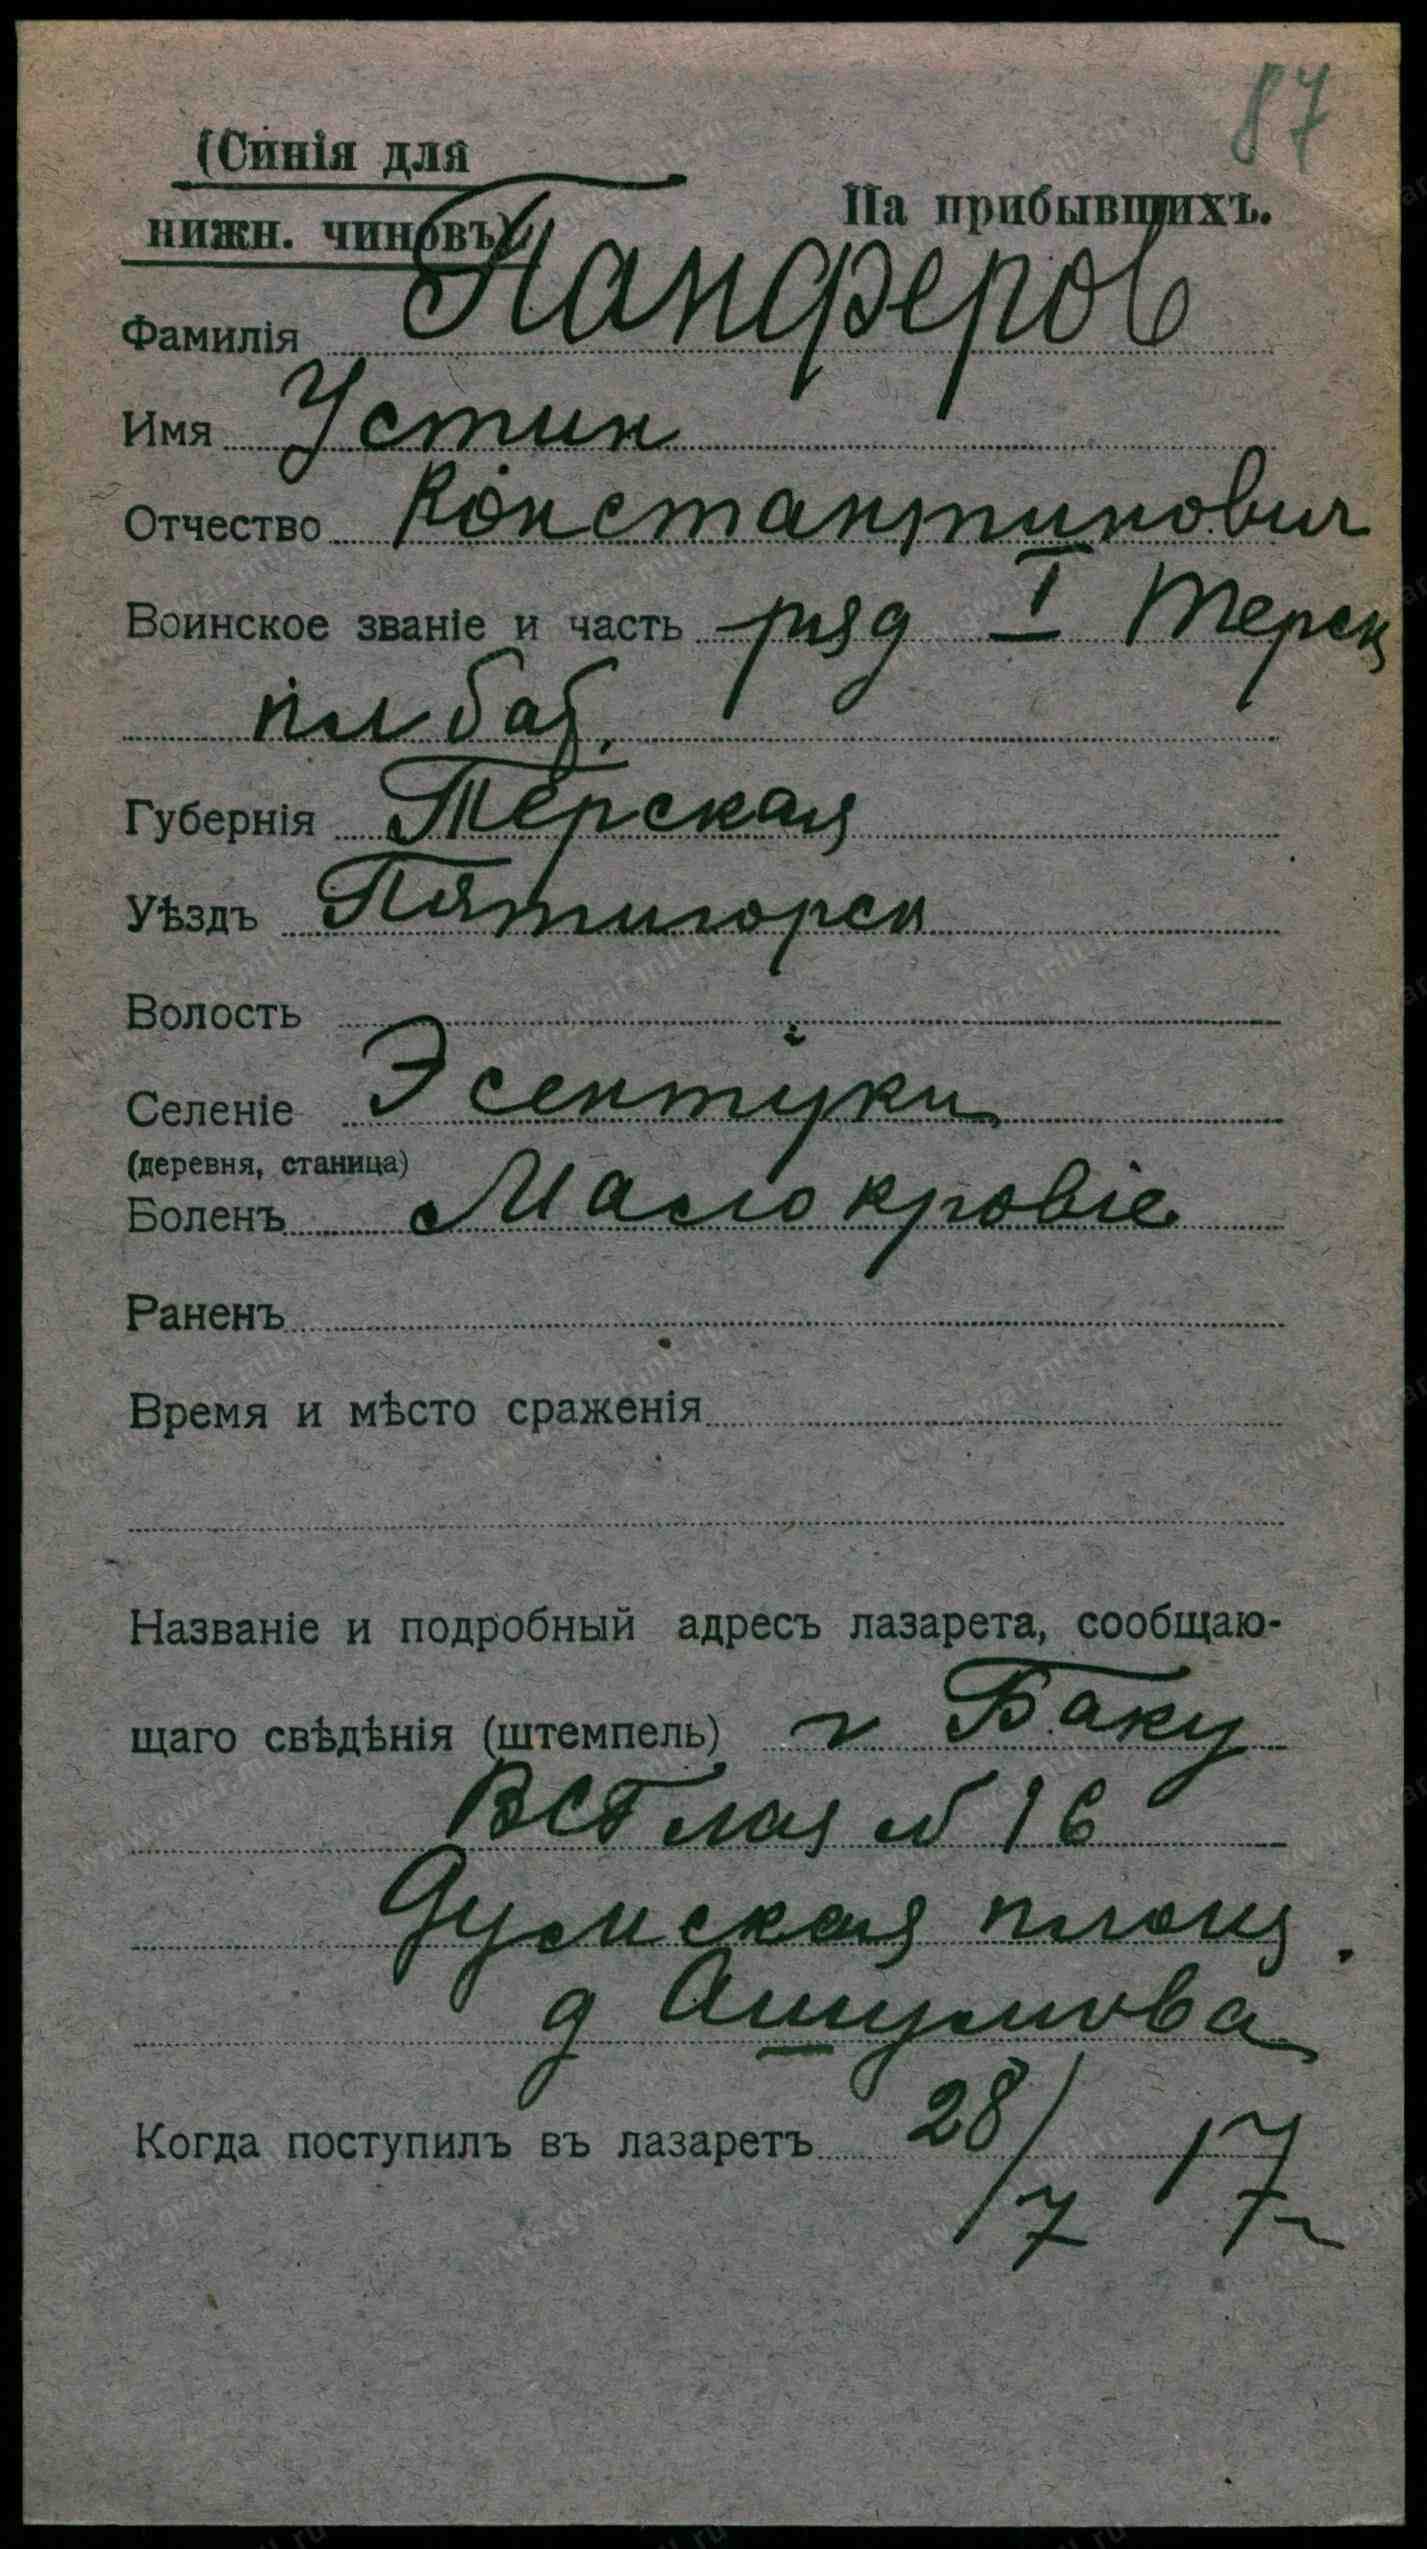 87
(Синія для
нижн. чиновъ)
На прибывшихъ.
Фамилія Панферов
Имя Устин
Отчество Константинович
Воинское званіе и часть ряд I Терск
пл баб.
Губернія Терская
Уѣздъ Пятигорск
Волость
Селеніе Эсентуки
(деревня, станица)
Боленъ Малокровіе
Раненъ
Время и мѣсто сраженія
Названіе и подробный адресъ лазарета, сообщаю-
щаго свѣдѣнія (штемпель) г Баку
ВСГ лаз № 16
Думская площ.
д Ашумова
Когда поступилъ въ лазаретъ 28/7 17 г